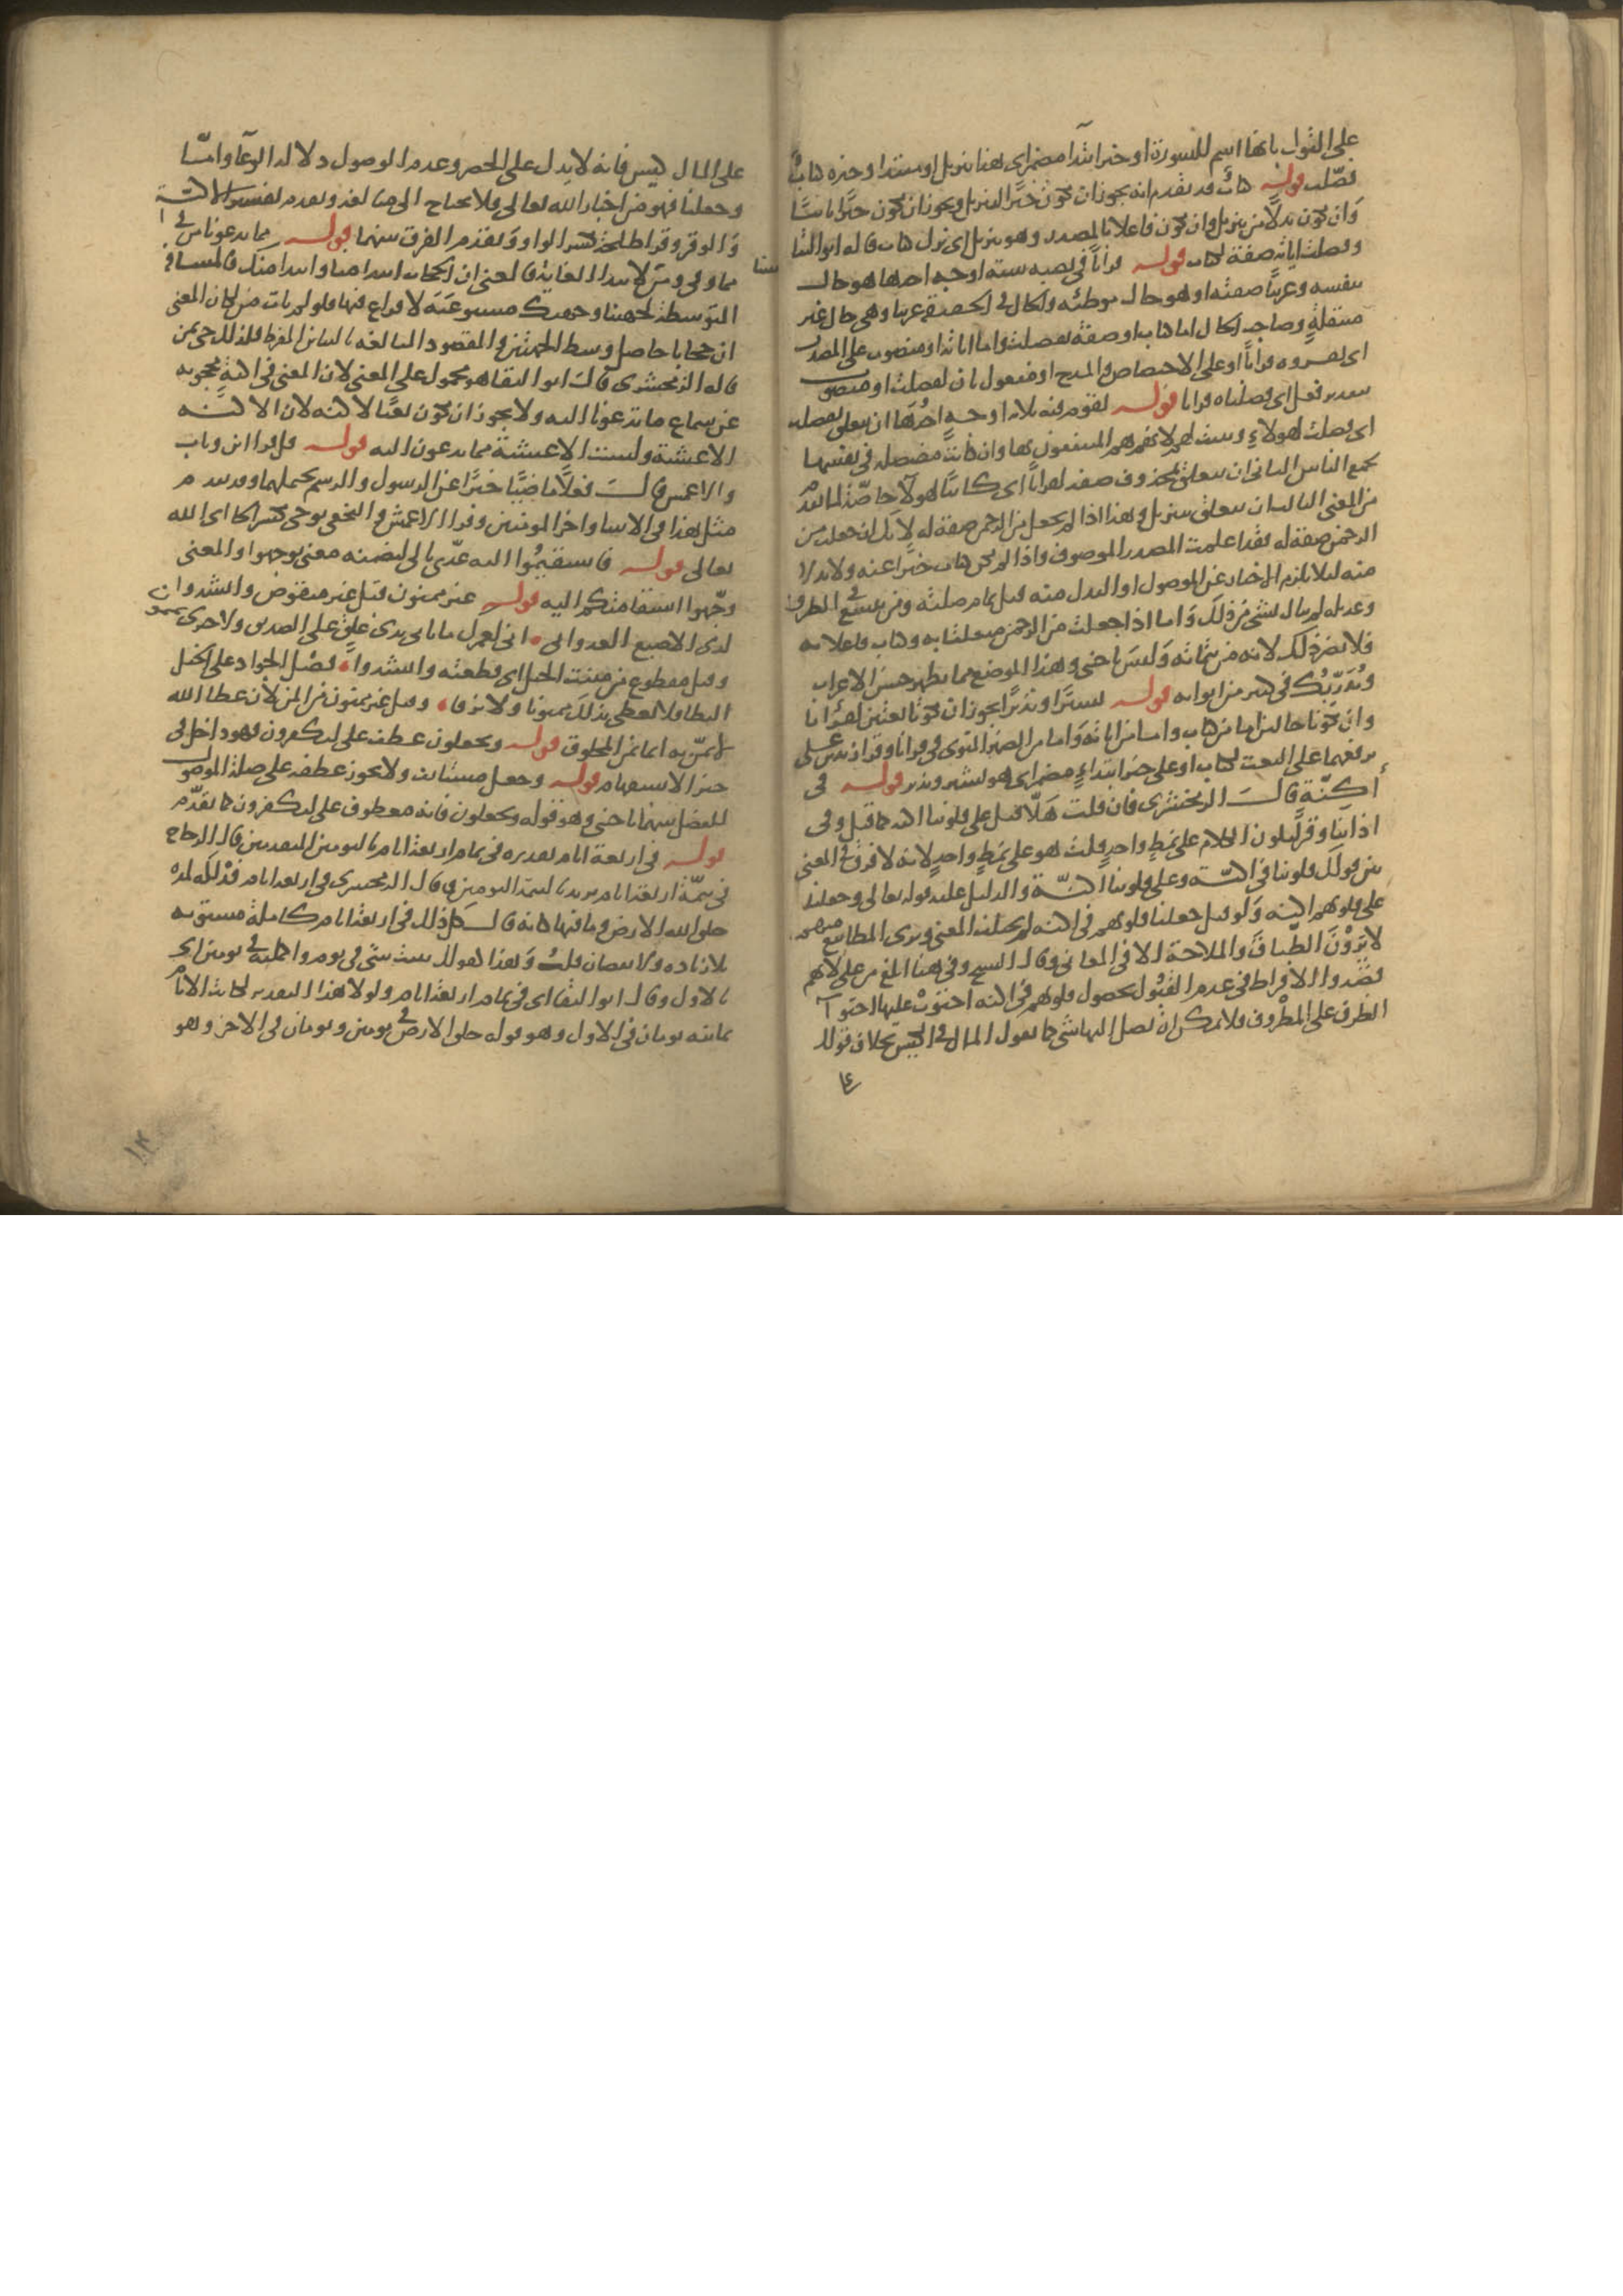 على الثواب بانها اسم للسورة او خبر ابتدا مضمر اى هذا تنزيل او مبتدا وخبره كتاب
فصلت قوله كتاب قد تقدم انه يجوز ان يكون خبرا لتنزيل ويجوز ان يكون خبرا ثانيا
وان يكون بدلا من تنزيل وان يكون فاعلا بالمصدر وهو تنزيل اى نزل كتاب قاله ابو البقا
وفصلت اياته صفة لكتاب قوله قرانا فى نصبه ستة اوجه احدها هو حال
بنفسه وعربيا صفته او هو حال موطئه والحال فى الحقيقة عربيا وهى حال غير
منتقلة وصاحب الحال اما كتاب او صفة لفصلت واما اياته او منصوب على المصدر
اى يقروه قرانا او على الاختصاص والمدح او مفعول ثان لفصلت او منصوب
بتقدير فعل اى فصلناه قرانا قوله لقوم فيه ثلاثة اوجه احدها ان يتعلق بفصلت
اى فصلت لهولاء وبينت لهم لانهم هم المنتفعون بها وان كانت مفصلة فى نفسها
لجميع الناس الثانى ان يتعلق بمحذوف صفة لقرانا اى كائنا لهولاء خاصة لما تقدم
من المعنى الثالث ان يتعلق بتنزيل وهذا اذا لم يجعل من الرحمن صفة له لانك ان جعلت من
الرحمن صفة له فقد اعملت المصدر الموصوف واذا لم يكن كتاب خبرا عنه ولا بدلا
منه لئلا يلزم الاخبار عن الموصول او البدل منه قبل تمام صلته ومن يتسع فى الظروف
وعديله لم يبال بشى من ذلك واما اذا جعلت من الرحمن متعلقا به وكتاب فاعلا به
فلا يضر ذلك لانه من تتماته وليس باجنبى وهذا الموضع مما يظهر حسن الاعراب
ويدربك فى كثير من ابوابه قوله بشيرا ونذيرا يجوز ان يكونا نعتين لقرانا
وان يكونا حالين اما من كتاب واما من اياته واما من الضمير المنوى فى قرانا وقرا زيد بن على
برفعهما على النعت لكتاب او على خبر ابتداء مضمر اى هو بشير ونذير قوله فى
أكنة قال الزمخشرى فان قلت هلا قيل على قلوبنا اكنة كما قيل وفى
اذاننا وقر ليكون الكلام على نمط واحد قلت هو على نمط واحد لانه لا فرق فى المعنى
بين قولك قلوبنا فى اكنة وعلى قلوبنا اكنة والدليل عليه قوله تعالى وجعلنا
على قلوبهم اكنة ولو قيل جعلنا قلوبهم فى اكنة لم يختلف المعنى وترى المطابيع منهم
لا يرون الطباق والملاحة الا فى المعانى وقال الشيخ وفى هنا ابلغ من على لانهم
قصدوا الافراط فى عدم القبول بحصول قلوبهم فى اكنة احتوت عليها احتوآ
الظرف على المظروف فلا يمكن ان يصل اليها شى كما تقول المال فى الكيس بخلاف قولك
على المال كيس فانه لا يدل على الحصر وعدم الوصول دلالة الوعاء واما
وجعلنا فهو من اخبار الله تعالى فلا يحتاج الى مبالغة وتقدم تفسير الاكنة
والوقر وقرا طلحة بكسر الواو وتقدم الفرق بينهما قوله مما تدعونا من فى
مما وفى ومن لابتدا الغاية فالمعنى ان الحجاب ابتدا منا وابتدا منك فالمسافة
المتوسطة لجهتنا وجهتك مستوعبة لا فراغ فيها فلو لم يات من لكان المعنى
ان حجابا حاصل وسط الجهتين والمقصود المبالغة بالتباين المفرط فلذلك جى بمن
قاله الزمخشرى قال ابو البقا هو محمول على المعنى لان المعنى فى اكنة محجوبة
عن سماع ما تدعونا اليه ولا يجوز ان يكون نعتا لاكنة لان الاكنة
الاغشية وليست الاغشية مما يدعون اليه قوله قل قرا ابن وثاب
والاعمش قال فعلا ماضيا خبرا عن الرسول والرسم يحتملهما وقد تقدم
مثل هذا فى الانبيا واخر المومنين وقرا الاعمش والنخعى يوحى بكسر الحا اى الله
تعالى قوله فاستقيموا اليه عدى بالى لتضمنه معنى توجهوا والمعنى
وجهوا استقامتكم اليه قوله غير ممنون قيل غير منقوص وانشدوا
لذى الاصبع العدوانى انى لعمرك ما بابى بذى غلق على الصديق ولا خيرى بممنون
وقيل مقطوع من مننت الحبل اى قطعته وانشدوا فضل الجواد على الخيل
البطا فلا يعطى بذلك ممنونا ولا نزقا وقيل غير ممنون من المن لان عطا الله
لا يمن به انما يمن المخلوق قوله وتجعلون عطف على لتكفرون فهو داخل فى
حيز الاستفهام قوله وجعل مستانف ولا يجوز عطفه على صلة الموصول
للفصل بينهما باجنبى وهو قوله وتجعلون فانه معطوف على لتكفرون كما تقدم
قوله فى اربعة ايام تقديره فى تمام اربعة ايام باليومين المتقدمين قال الزجاج
فى تتمة اربعة ايام يريد بالتتمة اليومين وقال الزمخشرى فى اربعة ايام فذلكة لمدة
خلق الله الارض وما فيها كانه قال كل ذلك فى اربعة ايام كاملة مستوية
بلا زيادة ولا نقصان قلت وهذا كقولك بنيت بيتى فى يوم واكملته فى يومين اى
بالاول وقال ابو البقا اى فى تمام اربعة ايام ولولا هذا التقدير لكانت الايام
ثمانية يومان فى الاول وهو قوله خلق الارض فى يومين ويومان فى الاخر وهو